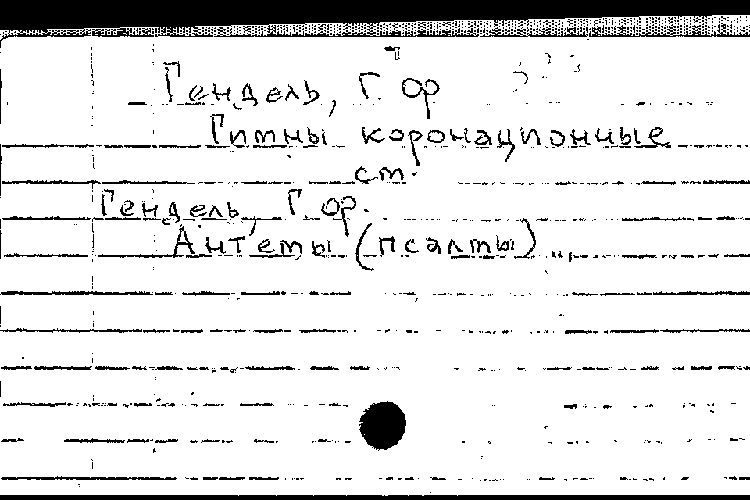 Гендель, Г. Ор
Гимны коронационные
см.
Гендель, Г. Ор.
Антемы (псалмы)